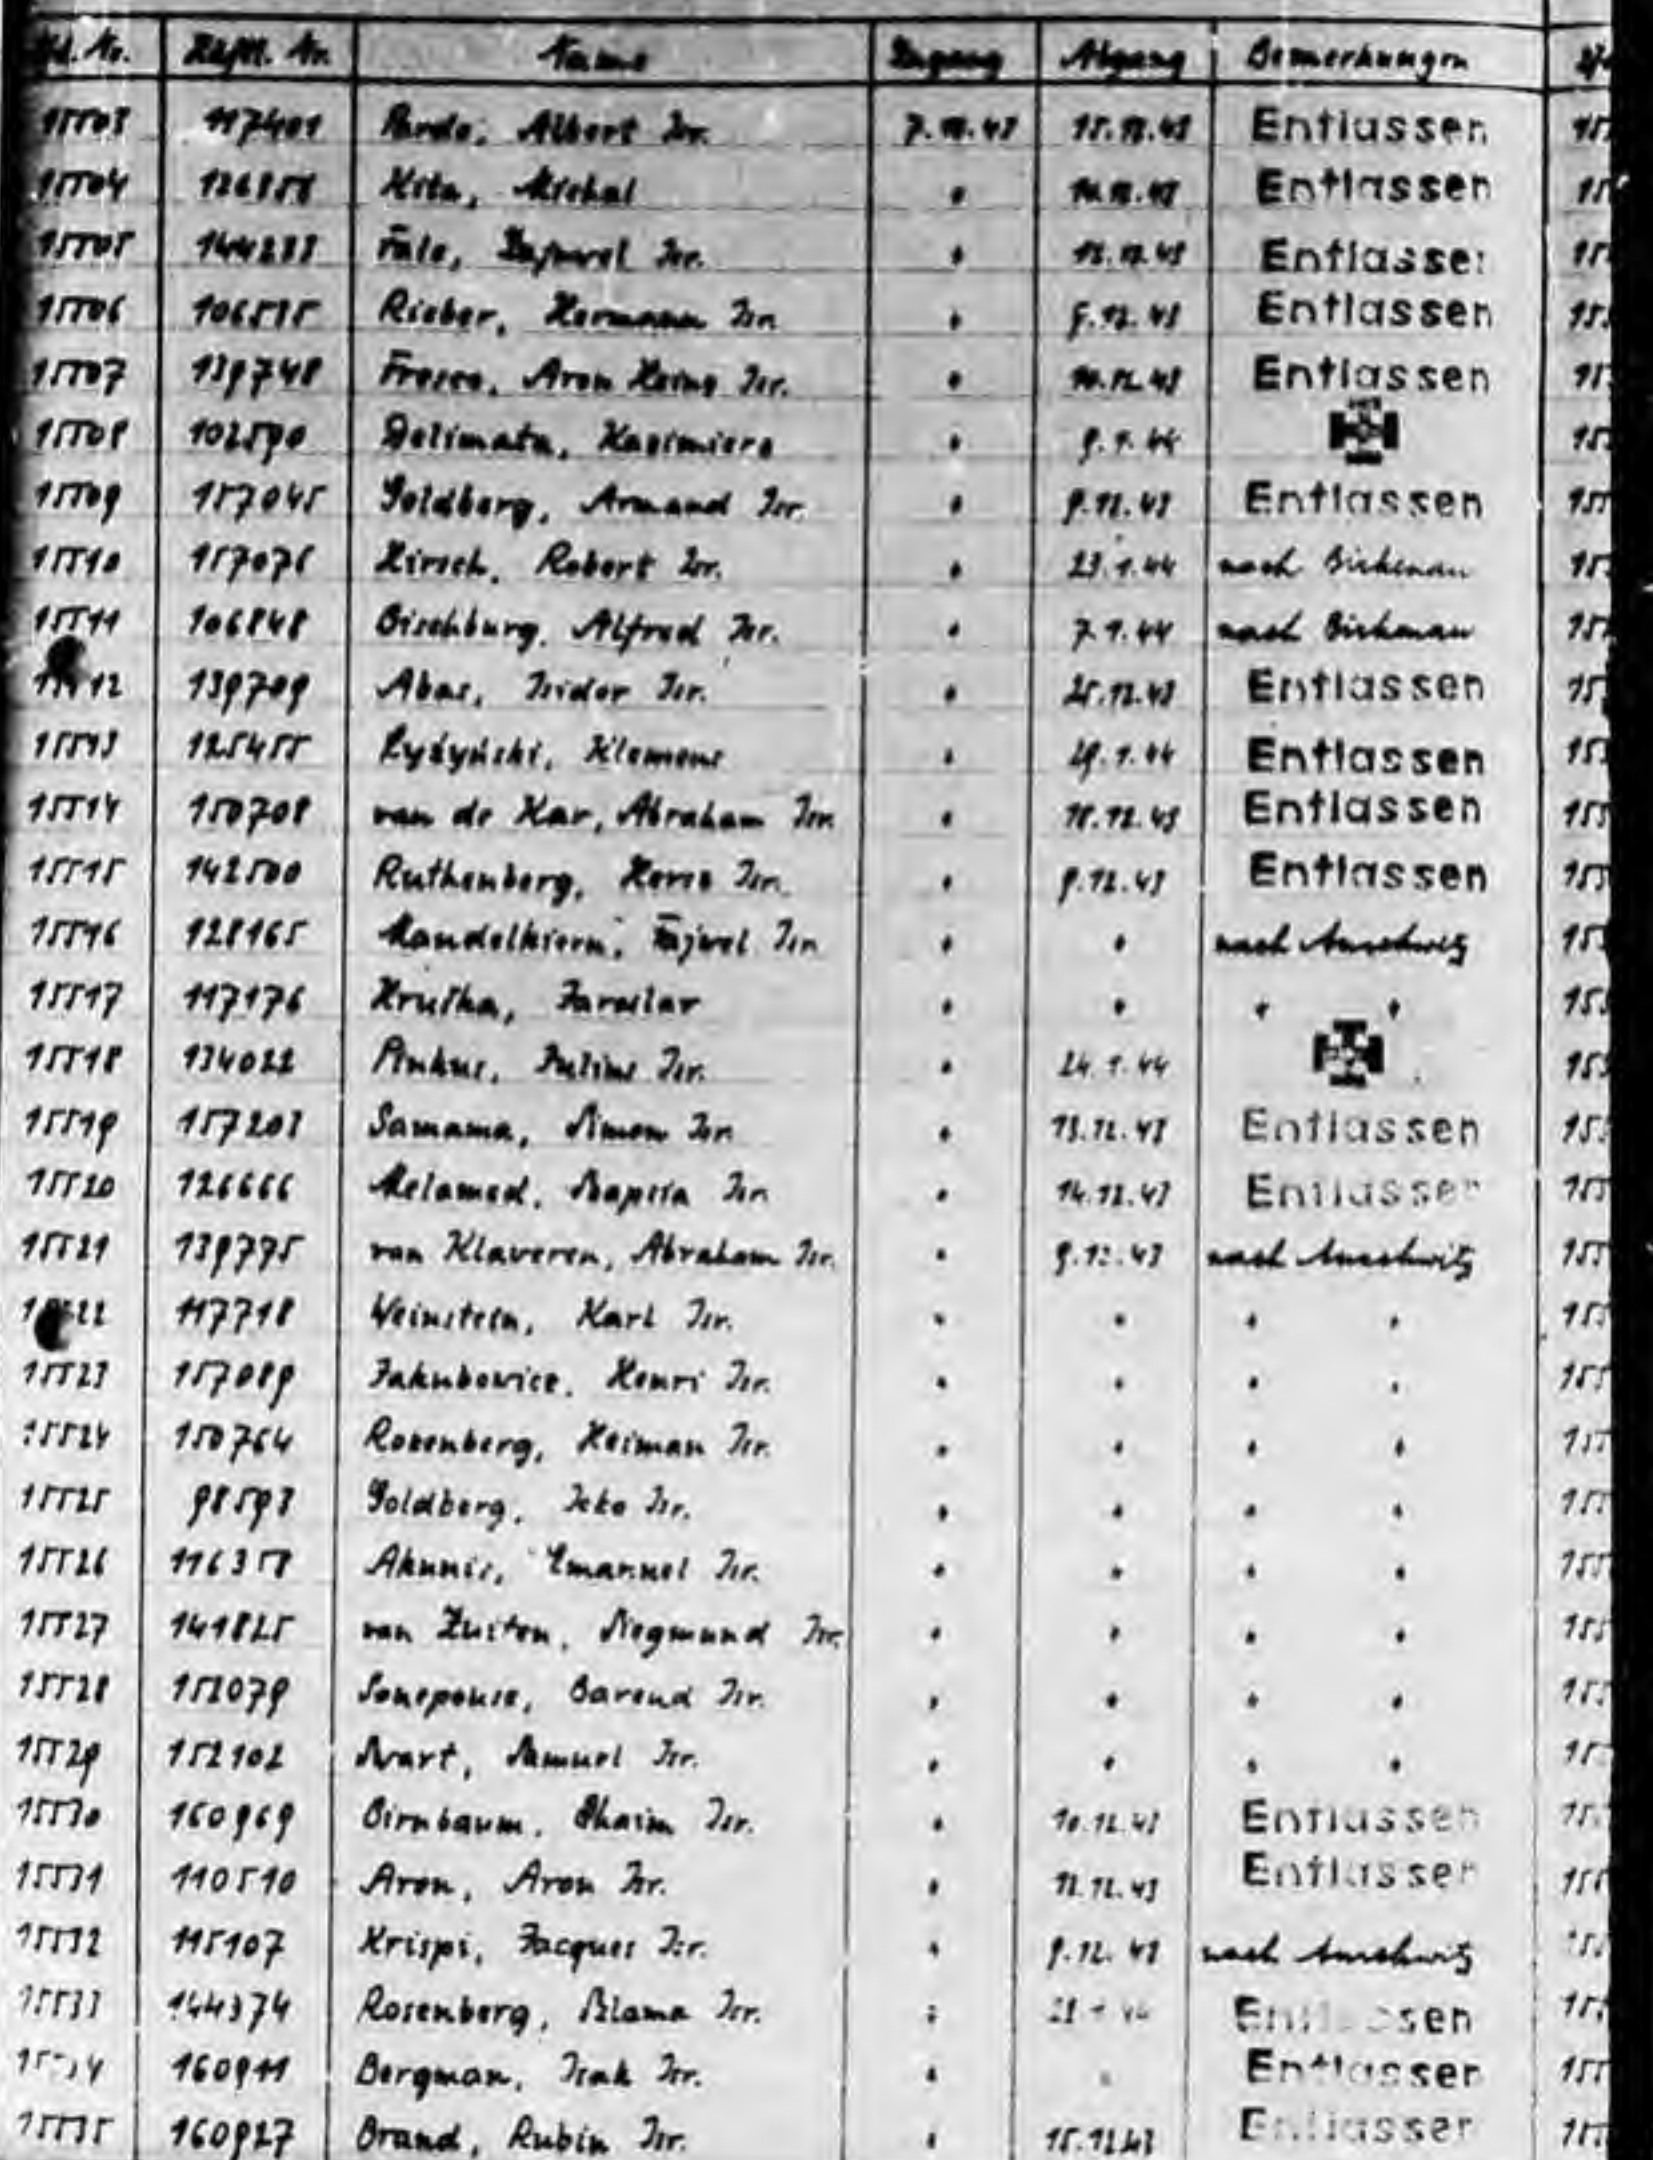 Lfd. Nr. Häftl. Nr. Name Zugang Abgang Bemerkungen
15503 117401 Pardo, Albert Isr. 7.12.43 15.12.43 Entlassen
15504 126858 Michal " 14.12.43 Entlassen
15505 144233 Isr. " Entlassen
15506 106515 Rieber, Hermann Isr. " Entlassen
15507 139748 Fresco, Aron Isr. " Entlassen
15508 102590 Delimata, Kasimierz " 9.1.44
15509 157045 Goldberg, Armand Isr. " 9.12.43 Entlassen
15510 157076 Hirsch, Robert Isr. " 23.1.44 nach Birkenau
15511 106848 Bischburg, Alfred Isr. " 7.1.44 nach Birkenau
15512 139709 Abas, Isidor Isr. " 25.12.43 Entlassen
15513 125455 Klemens " 29.1.44 Entlassen
15514 150708 van de Kar, Abraham Isr. " 18.12.43 Entlassen
15515 142500 Ruthenberg, Isr. " 9.12.43 Entlassen
15516 128165 Mandelkiern, Fajwel Isr. " " nach Auschwitz
15517 117176 Hruška, Jaroslav " " " "
15518 134022 Pinkus, Julius Isr. " 24.1.44
15519 157203 Samama, Simon Isr. " 13.12.43 Entlassen
15520 126666 Melamed, Isr. " 14.12.43 Entlassen
15521 139775 van Klaveren, Abraham Isr. " 9.12.43 nach Auschwitz
15522 117718 Weinstein, Karl Isr. " " " "
15523 157089 Jakubowicz, Henri Isr. " " " "
15524 150764 Rosenberg, Heiman Isr. " " " "
15525 98593 Goldberg, Icko Isr. " " " "
15526 116358 Akunis, Emanuel Isr. " " " "
15527 141825 van Zuiten, Siegmund Isr. " " " "
15528 152079 Sonepouse, Barend Isr. " " " "
15529 152102 Swart, Samuel Isr. " " " "
15530 160969 Birnbaum, Chaim Isr. " 10.12.43 Entlassen
15531 110510 Aron, Aron Isr. " 12.12.43 Entlassen
15532 115107 Krispi, Jacques Isr. " 9.12.43 nach Auschwitz
15533 144374 Rosenberg, Szlama Isr. " Entlassen
15534 160911 Bergman, Isak Isr. " " Entlassen
15535 160927 Brand, Rubin Isr. " 15.12.43 Entlassen